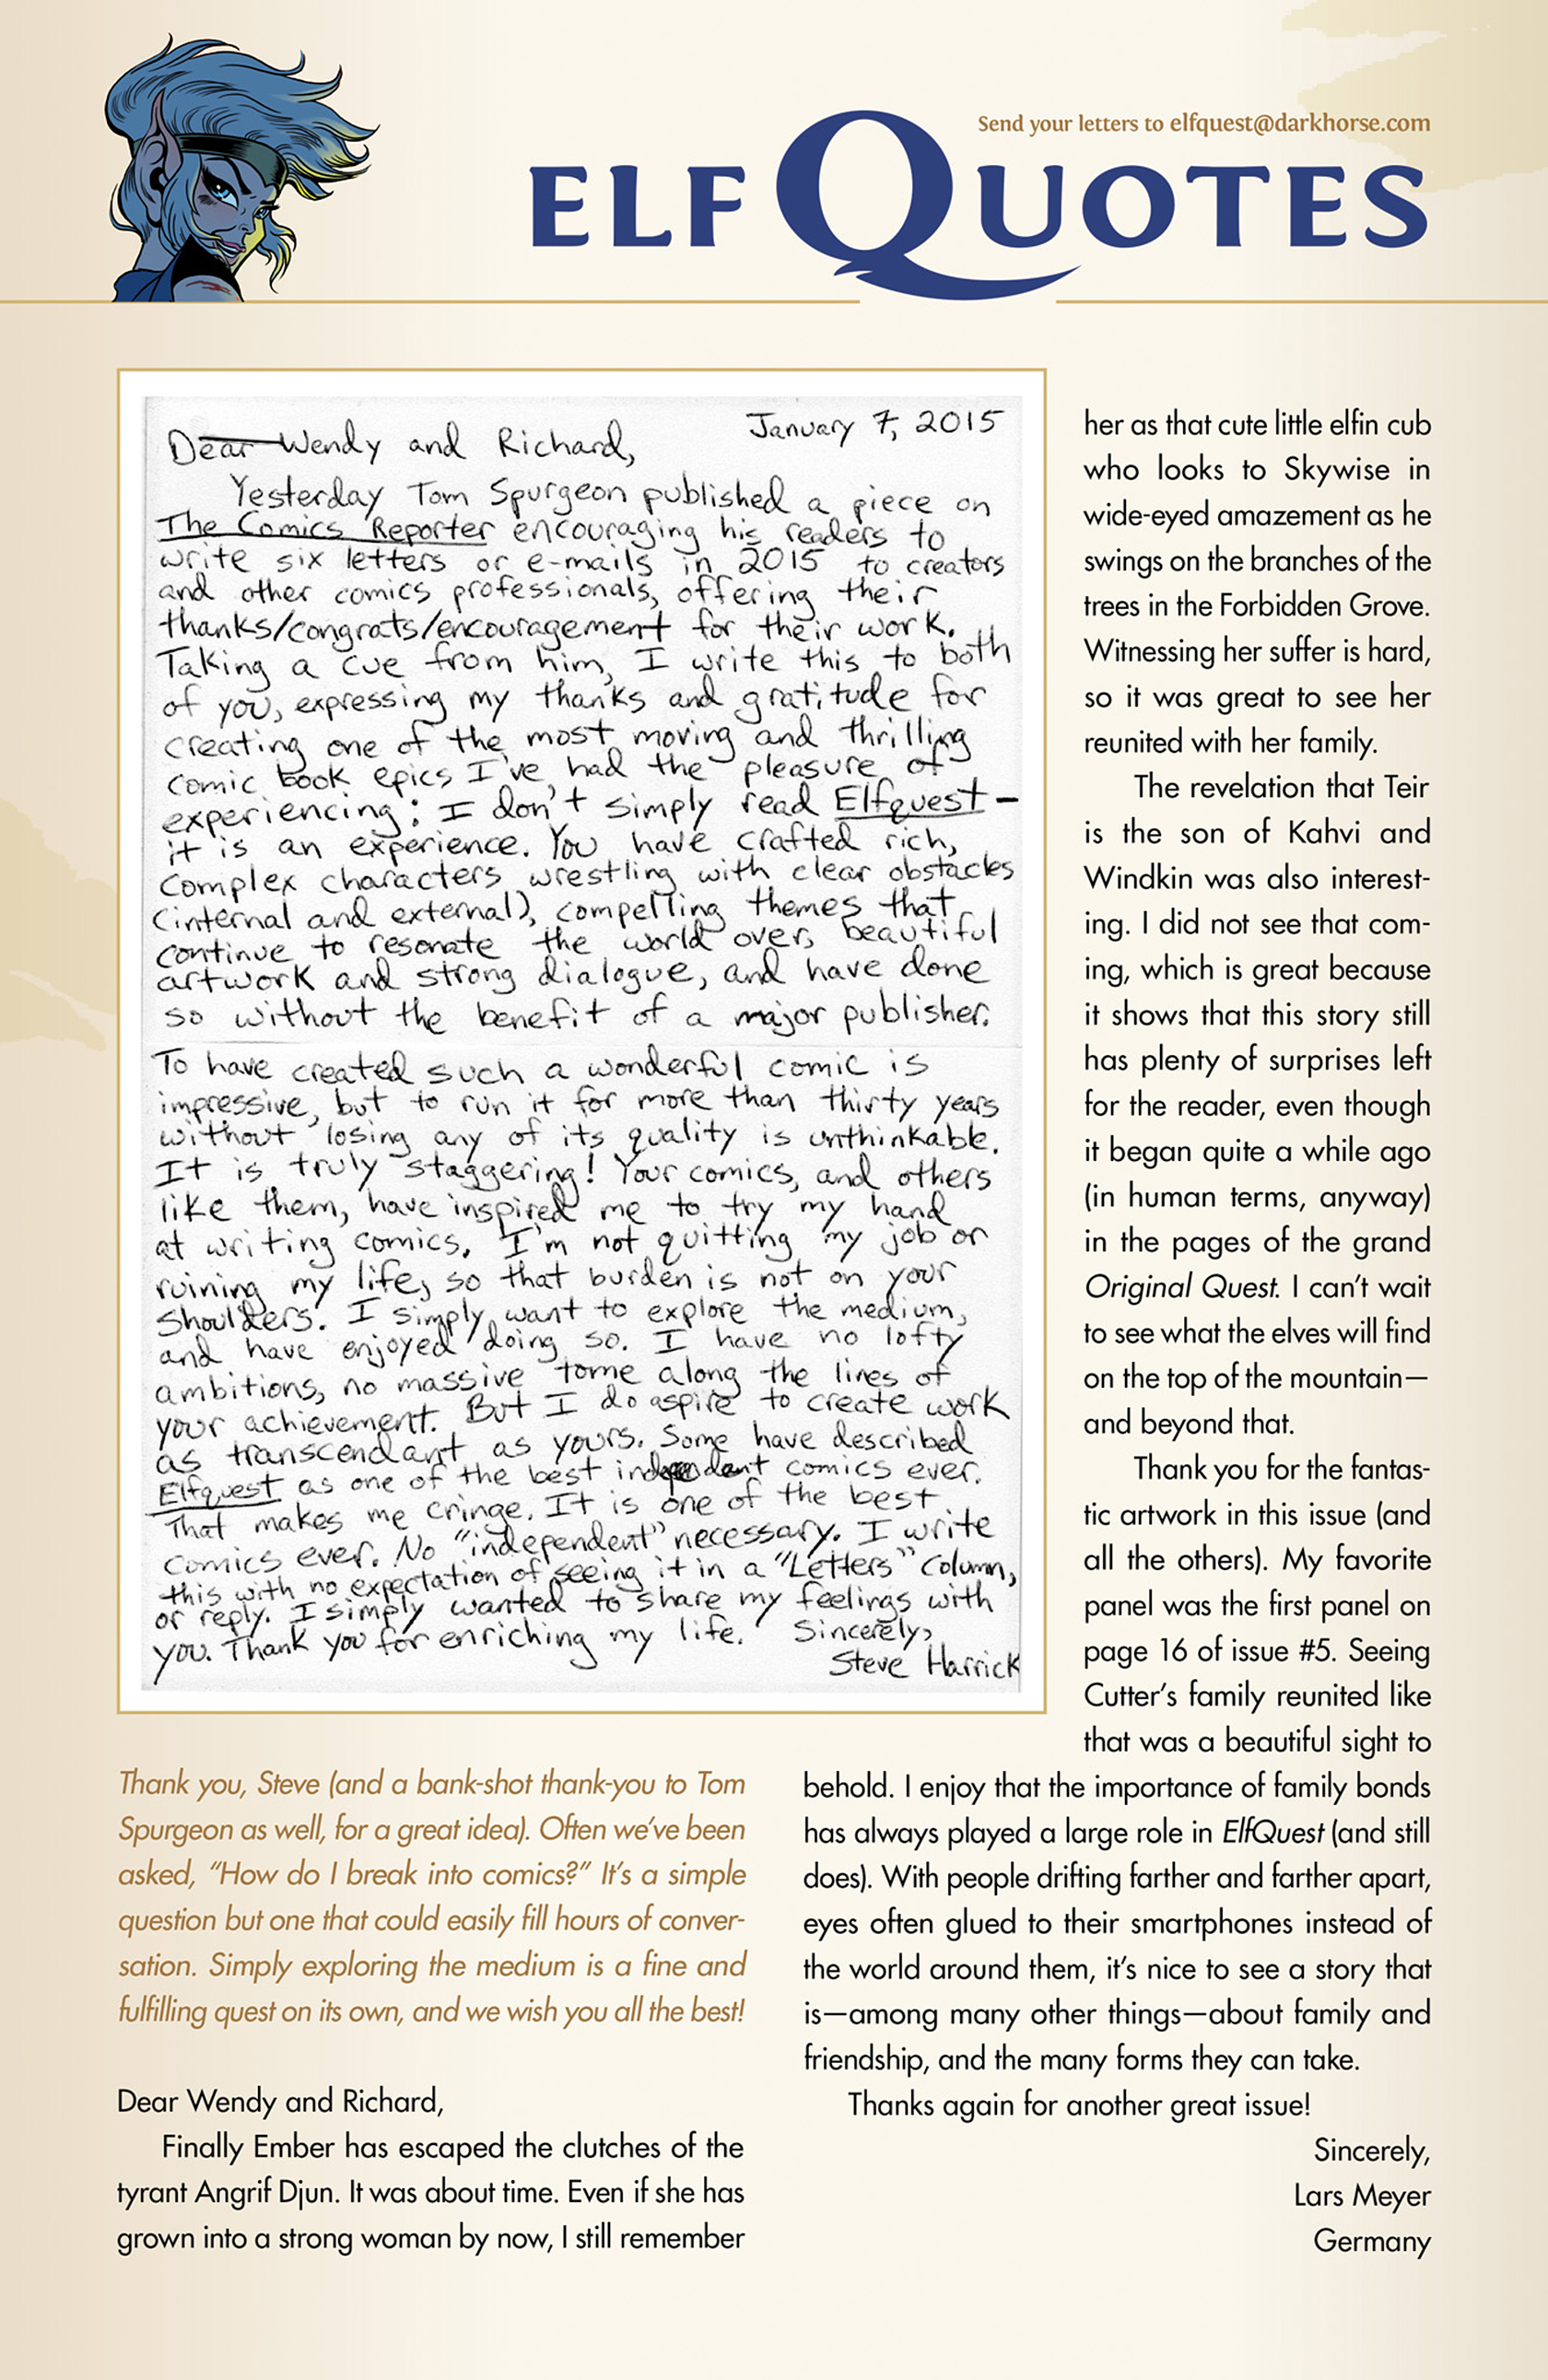 Send your letters to elfquest@darkhorse.com
ELFQUOTES
January 7, 2015
Dear Wendy and Richard,
Yesterday Tom Spurgeon published a piece on
The Comics Reporter encouraging his readers to
write six letters or e-mails in 2015 to creators
and other comics professionals, offering their
thanks/congrats/encouragement for their work.
Taking a cue from him, I write this to both
of you, expressing my thanks and gratitude for
creating one of the most moving and thrilling
comic book epics I've had the pleasure of
experiencing: I don't simply read Elfquest—
it is an experience. You have crafted rich,
complex characters wrestling with clear obstacles
(internal and external), compelling themes that
continue to resonate the world over, beautiful
artwork and strong dialogue, and have done
so without the benefit of a major publisher.
To have created such a wonderful comic is
impressive, but to run it for more than thirty years
without losing any of its quality is unthinkable.
It is truly staggering! Your comics, and others
like them, have inspired me to try my hand
at writing comics. I'm not quitting my job or
ruining my life, so that burden is not on your
shoulders. I simply want to explore the medium,
and have enjoyed doing so. I have no lofty
ambitions, no massive tome along the lines of
your achievement. But I do aspire to create work
as transcendant as yours. Some have described
Elfquest as one of the best independent comics ever.
That makes me cringe. It is one of the best
comics ever. No "independent" necessary. I write
this with no expectation of seeing it in a "Letters" column,
or reply. I simply wanted to share my feelings with
you. Thank you for enriching my life. Sincerely,
Steve Harrick
Thank you, Steve (and a bank-shot thank-you to Tom
Spurgeon as well, for a great idea). Often we've been
asked, "How do I break into comics?" It's a simple
question but one that could easily fill hours of conver-
sation. Simply exploring the medium is a fine and
fulfilling quest on its own, and we wish you all the best!
Dear Wendy and Richard,
Finally Ember has escaped the clutches of the
tyrant Angrif Djun. It was about time. Even if she has
grown into a strong woman by now, I still remember
her as that cute little elfin cub
who looks to Skywise in
wide-eyed amazement as he
swings on the branches of the
trees in the Forbidden Grove.
Witnessing her suffer is hard,
so it was great to see her
reunited with her family.
The revelation that Teir
is the son of Kahvi and
Windkin was also interest-
ing. I did not see that com-
ing, which is great because
it shows that this story still
has plenty of surprises left
for the reader, even though
it began quite a while ago
(in human terms, anyway)
in the pages of the grand
Original Quest. I can't wait
to see what the elves will find
on the top of the mountain—
and beyond that.
Thank you for the fantas-
tic artwork in this issue (and
all the others). My favorite
panel was the first panel on
page 16 of issue #5. Seeing
Cutter's family reunited like
that was a beautiful sight to
behold. I enjoy that the importance of family bonds
has always played a large role in ElfQuest (and still
does). With people drifting farther and farther apart,
eyes often glued to their smartphones instead of
the world around them, it's nice to see a story that
is—among many other things—about family and
friendship, and the many forms they can take.
Thanks again for another great issue!
Sincerely,
Lars Meyer
Germany